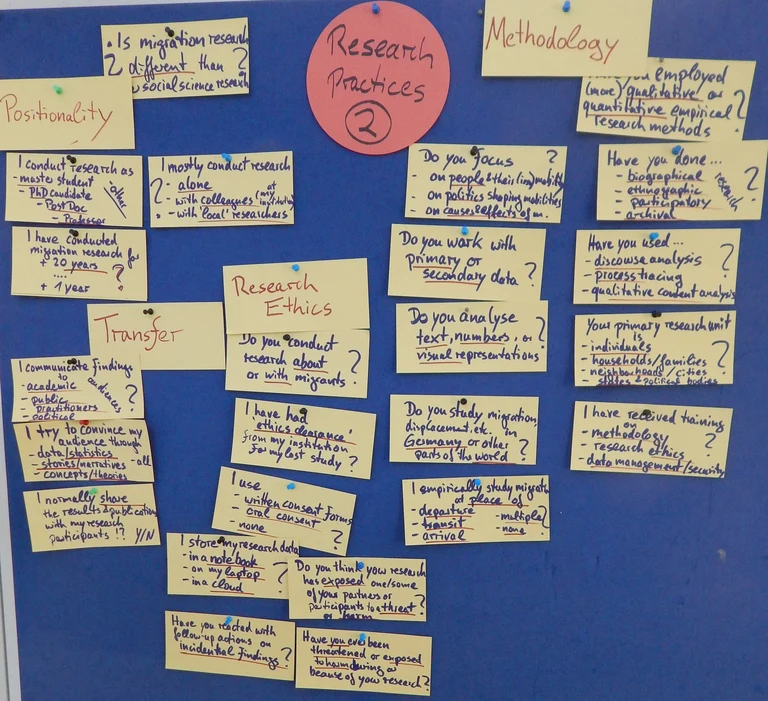 Research
Practices
2
Methodology
. Is migration research
? different than ?
social science research
Positionality
I conduct research as
- master student
- PhD candidate
- PostDoc
- Professor
- other
I mostly conduct research
? - alone
- with colleagues (at my institution)
- with 'local' researchers
I have conducted
migration research for
+ 20 years ?
....
+ 1 year
Transfer
I communicate findings
to
- academic
- public
- practitioners
- political
audiences?
I try to convince my
audience through
- data/statistics
- stories/narratives - all
- concepts/theories
I normally share
the results & publications
with my research
participants !? Y/N
Research
Ethics
Do you conduct
research about ?
or with migrants.
I have had
'ethics clearance'
from my institution
for my last study ?
I use
- written consent forms
- oral consent
- none ?
I store my research data
- in a notebook
- on my laptop ?
- in a cloud
Do you think your research
has exposed one/some
of your partners or
participants to a threat ?
or harm
Have you reacted with
follow-up actions on
incidental findings ?
Have you ever been
threatened or exposed
to harm during or
because of your research?
Do you focus ?
- on people & their (im)mobility
- on politics shaping mobilities
- on causes & effects of m.
Do you work with
primary or
secondary data ?
Do you analyse
text, numbers, or ?
visual representations
Do you study migration,
displacement, etc. in
Germany or other ?
parts of the world
I empirically study migration
at place of
- departure
- transit
- arrival
- multiple ?
- none
you employed
(more) qualitative or
quantitative empirical ?
research methods
Have you done... ?
- biographical
- ethnographic
- participatory
- archival
research
Have you used...
- discourse analysis ?
- process tracing
- qualitative content analysis
Your primary research unit
is
- individuals
- households/families ?
- neighborhoods/cities
- states & political bodies
I have received training
on
- methodology
- research ethics ?
- data management/security